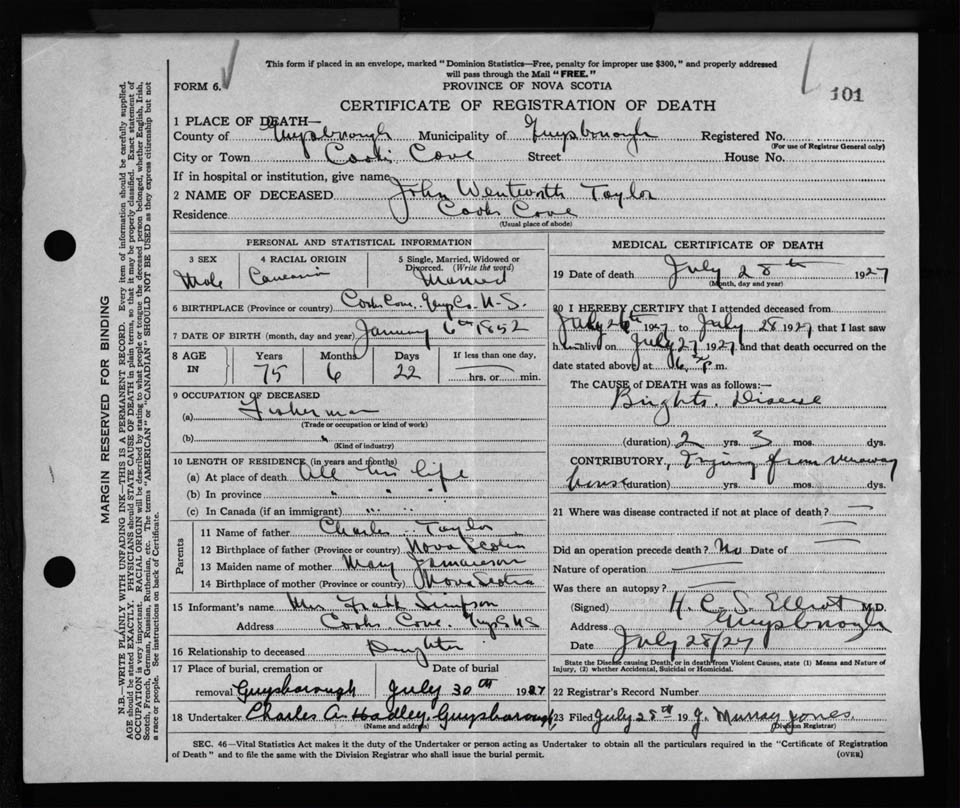 This form if placed in an envelope, marked "Dominion Statistics—Free, penalty for improper use $300," and properly addressed
will pass through the Mail "FREE."
FORM 6.
PROVINCE OF NOVA SCOTIA
101
CERTIFICATE OF REGISTRATION OF DEATH
1 PLACE OF DEATH—
County of Guysborough Municipality of Guysborough Registered No.
(For use of Registrar General only)
City or Town Cooks Cove Street House No.
If in hospital or institution, give name
2 NAME OF DECEASED John Wentworth Taylor
Residence Cooks Cove
(Usual place of abode)
PERSONAL AND STATISTICAL INFORMATION
3 SEX 4 RACIAL ORIGIN 5 Single, Married, Widowed or
Divorced. (Write the word)
Male Married
6 BIRTHPLACE (Province or country) Cooks Cove, Guy Co. N.S.
7 DATE OF BIRTH (month, day and year) January 6th 1852
8 AGE IN Years Months Days If less than one day,
75 6 22 hrs. or min.
9 OCCUPATION OF DECEASED
(a) Fisherman
(Trade or occupation or kind of work)
(b) "
(Kind of industry)
10 LENGTH OF RESIDENCE (in years and months)
(a) At place of death All his life
(b) In province " " "
(c) In Canada (if an immigrant) " " "
Parents
11 Name of father Charles Taylor
12 Birthplace of father (Province or country) Nova Scotia
13 Maiden name of mother Mary
14 Birthplace of mother (Province or country) Nova Scotia
15 Informant's name Mrs Simpson
Address Cooks Cove, Guy Co NS
16 Relationship to deceased Daughter
17 Place of burial, cremation or Date of burial
removal Guysborough July 30th 1927
18 Undertaker Charles A. Hadley, Guysborough
(Name and address)
MEDICAL CERTIFICATE OF DEATH
19 Date of death July 28th 1927
(Month, day and year)
20 I HEREBY CERTIFY that I attended deceased from
July 1927 to July 28 1927 that I last saw
h alive on July 27 1927 and that death occurred on the
date stated above at 6 p.m.
The CAUSE of DEATH was as follows:—
Brights Disease
(duration) 2 yrs. 3 mos. dys.
CONTRIBUTORY, Injury from runaway
horse (duration) yrs. mos. dys.
21 Where was disease contracted if not at place of death?
Did an operation precede death? No Date of
Nature of operation
Was there an autopsy?
(Signed) H. C. S. Elliot M.D.
Address Guysborough
Date July 28/27
State the Disease causing Death, or in death from Violent Causes, state (1) Means and Nature of
Injury, (2) whether Accidental, Suicidal or Homicidal.
22 Registrar's Record Number
23 Filed July 28th 19 J. Murray Jones
(Division Registrar)
SEC. 46—Vital Statistics Act makes it the duty of the Undertaker or person acting as Undertaker to obtain all the particulars required in the "Certificate of Registration
of Death" and to file the same with the Division Registrar who shall issue the burial permit.
(OVER)
MARGIN RESERVED FOR BINDING
N.B.—WRITE PLAINLY WITH UNFADING INK—THIS IS A PERMANENT RECORD. Every item of information should be carefully supplied.
AGE should be stated EXACTLY. PHYSICIANS should STATE CAUSE OF DEATH in plain terms, so that it may be properly classified. Exact statement of
OCCUPATION is very important. RACIAL ORIGIN will be described by stating to what people or tongue the deceased person belonged, whether English, Irish,
Scotch, French, German, Russian, Ruthenian, etc. The terms "AMERICAN" or "CANADIAN" SHOULD NOT BE USED as they express citizenship but not
a race or people. See instructions on back of Certificate.